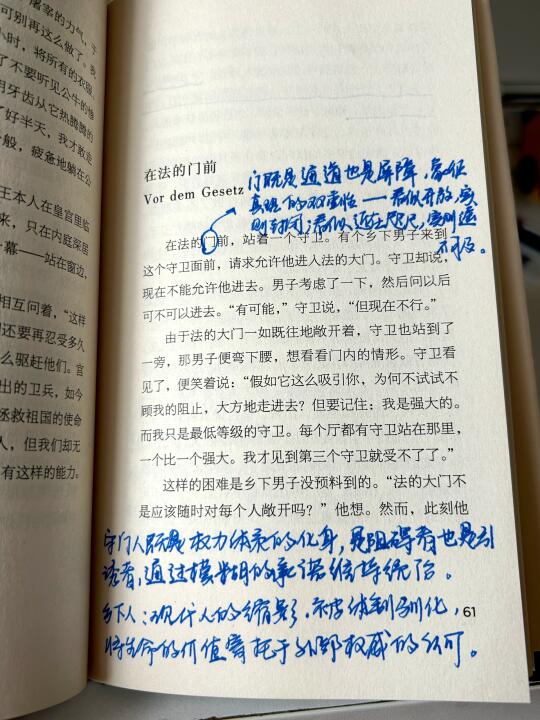 屠宰的力气，于
可别再这么做了。我
小时，将所有的衣服
了不要听见公牛的惨
用牙齿从它热腾腾的
了好半天，我才敢走
一般，疲惫地躺在公
王本人在皇宫里临
来，只在内庭深居
一幕——站在窗边，
相互问着，“这样
到还要再忍受多久
么驱赶他们。宫
出的卫兵，如今
拯救祖国的使命
人，但我们却无
有这样的能力。
在法的门前
Vor dem Gesetz
门既是通道也是屏障，象征
真理的双重性——看似开放，实
则封闭；看似近在咫尺，实则遥
不可及。
在法的门前，站着一个守卫。有个乡下男子来到
这个守卫面前，请求允许他进入法的大门。守卫却说，
现在不能允许他进去。男子考虑了一下，然后问以后
可不可以进去。“有可能，”守卫说，“但现在不行。”
由于法的大门一如既往地敞开着，守卫也站到了
一旁，那男子便弯下腰，想看看门内的情形。守卫看
见了，便笑着说：“假如它这么吸引你，为何不试试不
顾我的阻止，大方地走进去？但要记住：我是强大的。
而我只是最低等级的守卫。每个厅都有守卫站在那里，
一个比一个强大。我才见到第三个守卫就受不了了。”
这样的困难是乡下男子没预料到的。“法的大门不
是应该随时对每个人敞开吗？”他想。然而，此刻他
守门人既是权力体系的化身，是阻碍者也是引
诱者，通过模糊的承诺维持统治。
乡下人：现代人的缩影，被体制驯化，
将生命的价值寄托于外部权威的认可。
61